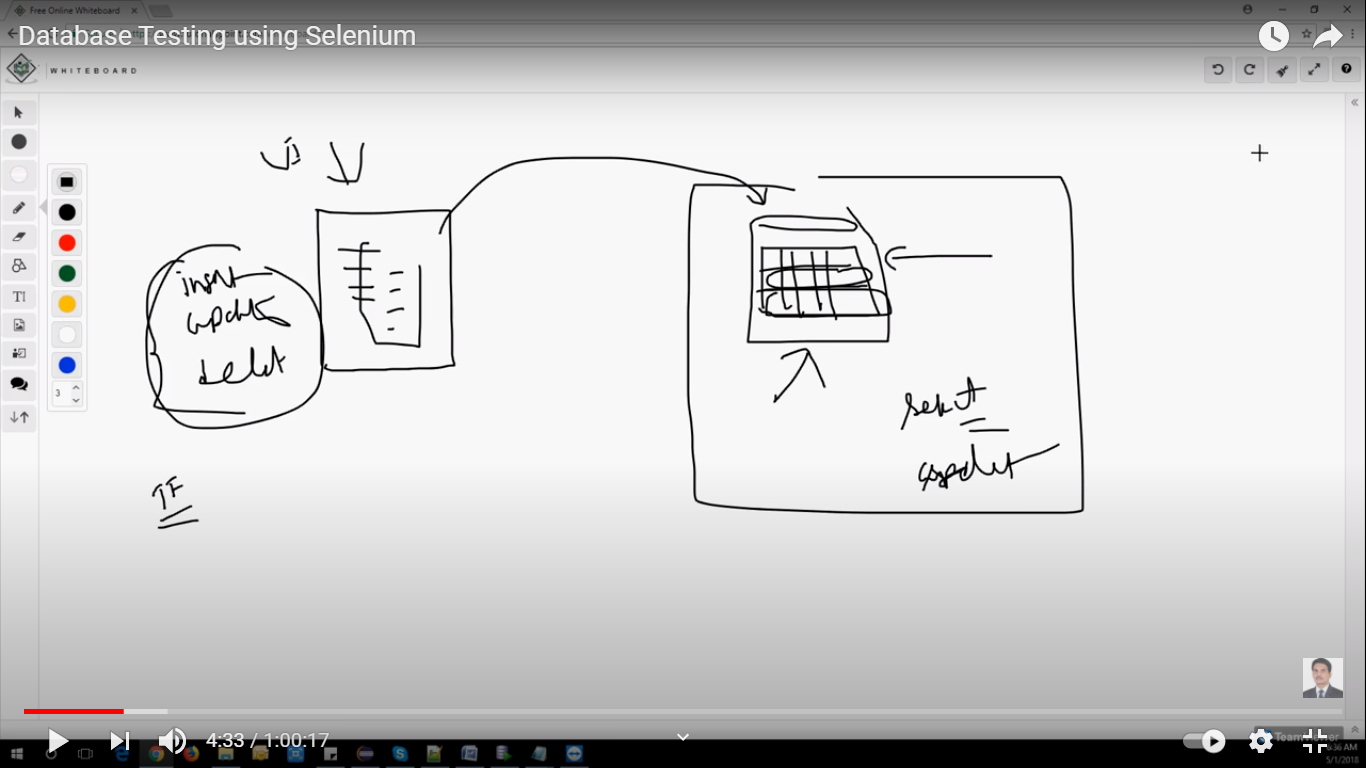 Free Online Whiteboard
Database Testing using Selenium
WHITEBOARD
UI
insert
update
delet
select
update
TF
TI
3
4:33 / 1:00:17
TeamViewer
5/1/2018